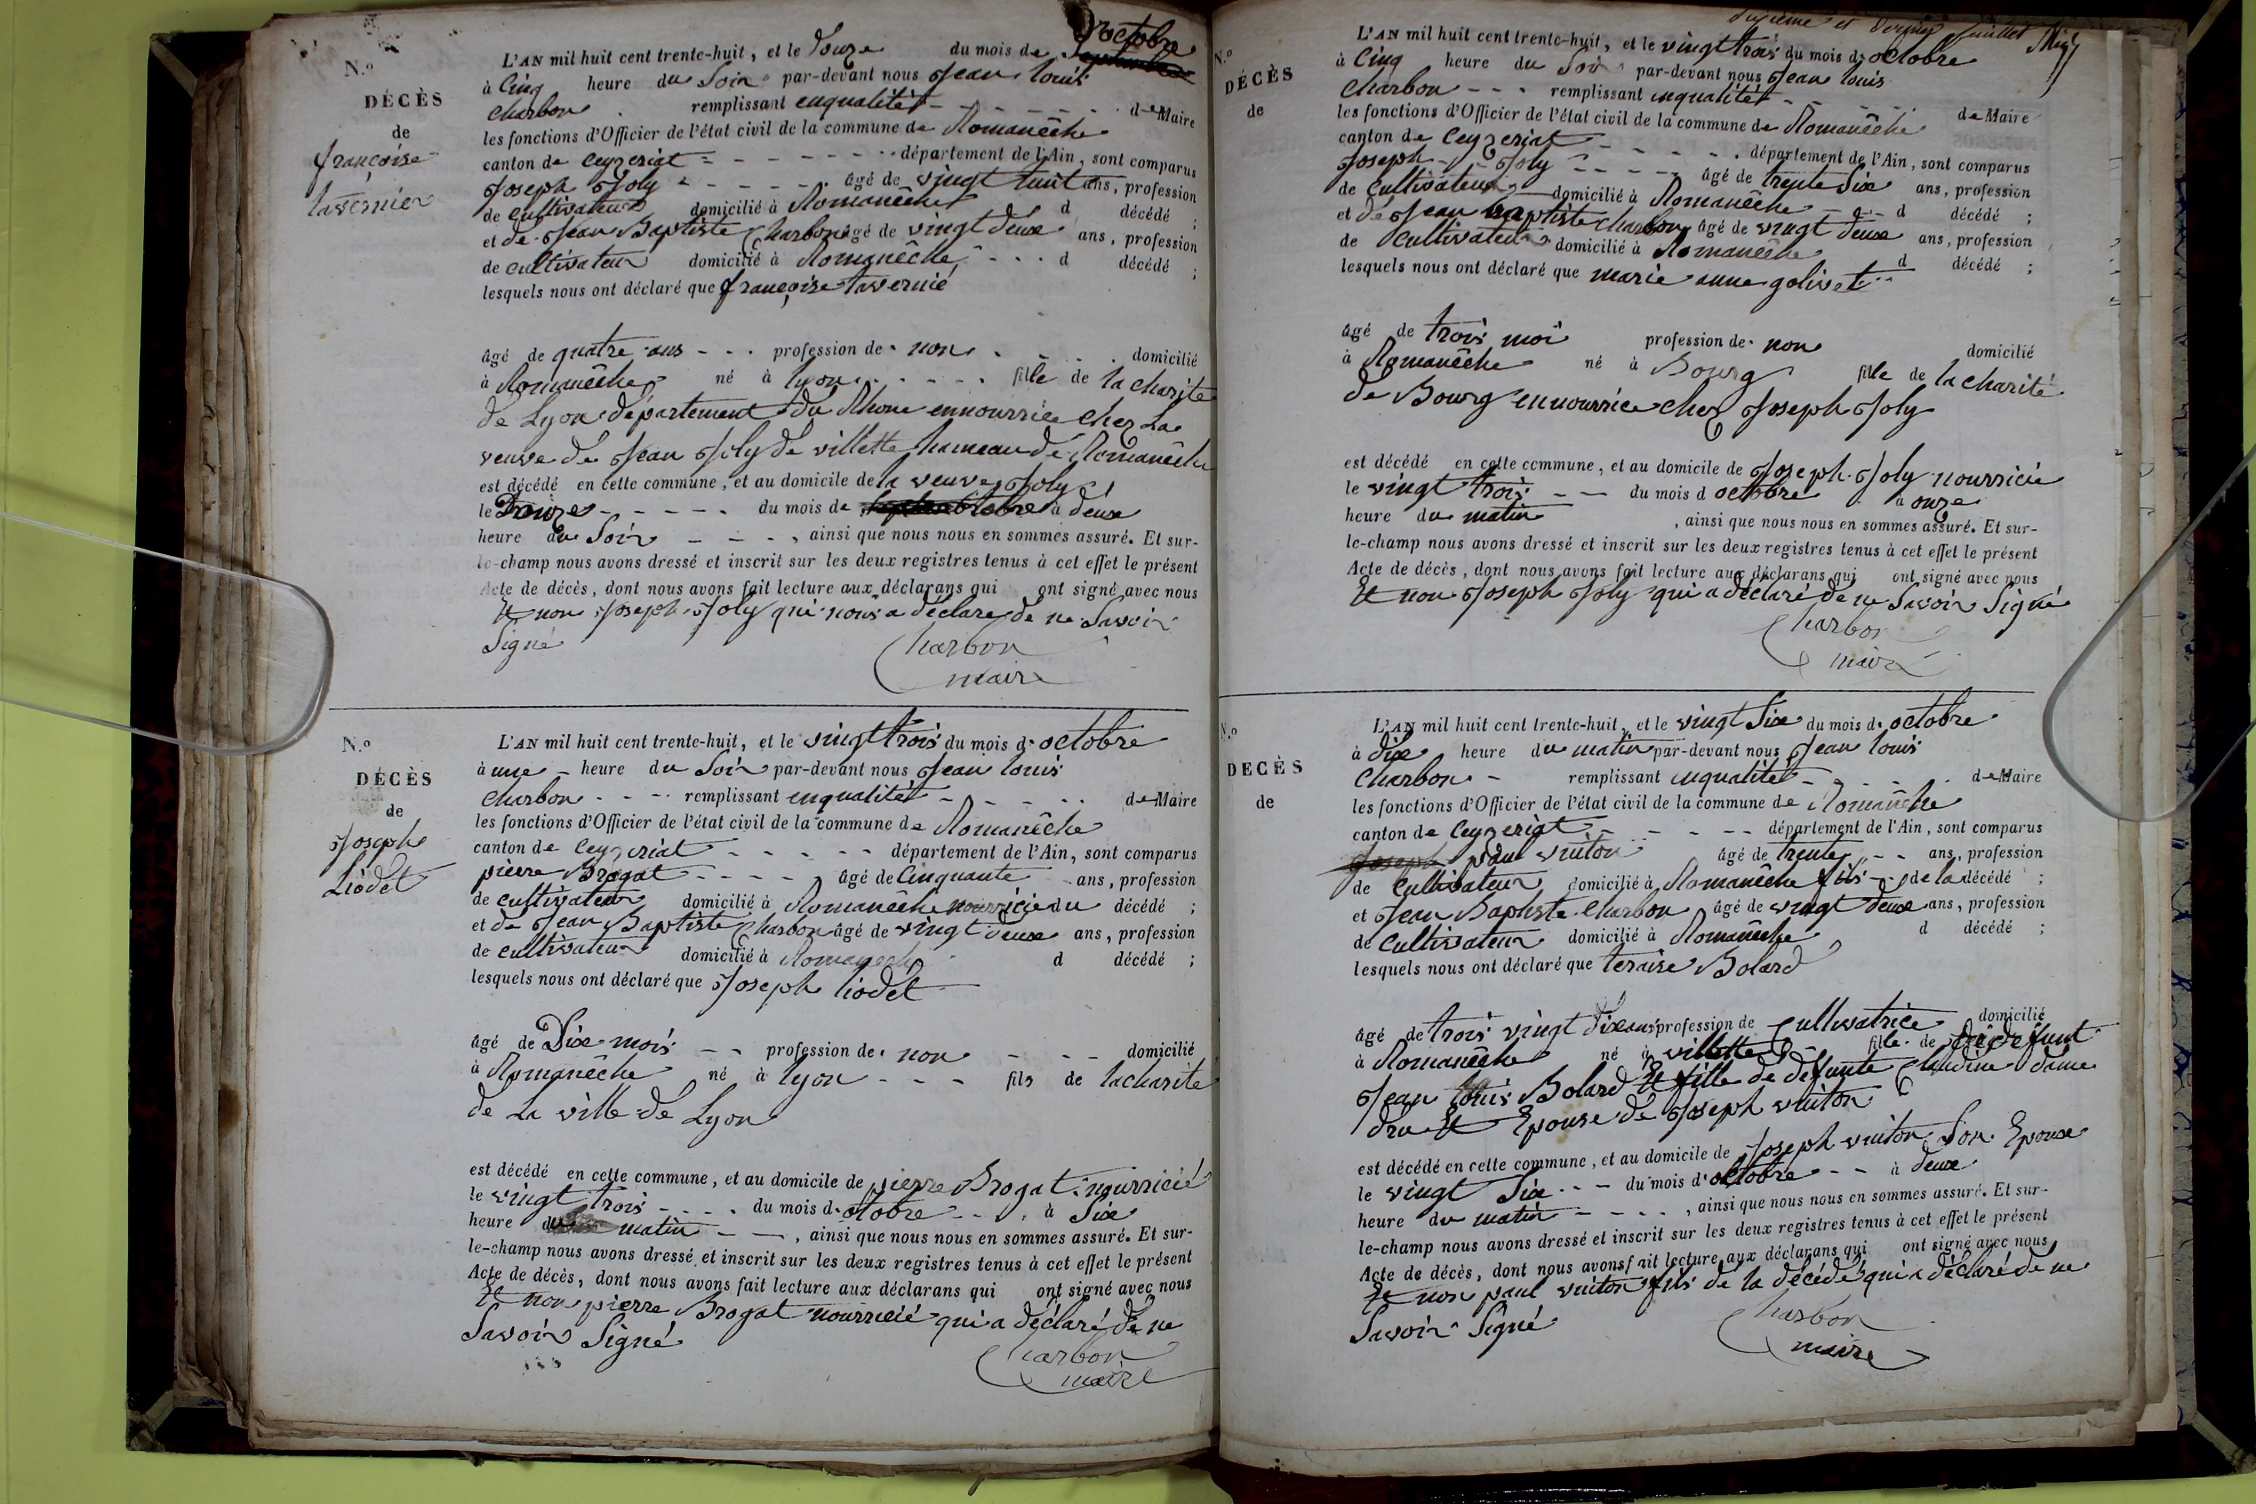 N.º
DÉCÈS
de
françoise
tavernier
L'AN mil huit cent trente-huit, et le douze du mois de octobre
à Cinq heure du Soir par-devant nous Jean louis
Charbon remplissant enqualitér de Maire
les fonctions d'Officier de l'état civil de la commune de Romanêche
canton de Ceyzeriat département de l'Ain, sont comparus
Joseph Joly âgé de vingt huit ans, profession
de Cultivateur domicilié à Romanêche d décédé ;
et de Jean Baptiste Charbon âgé de vingt deux ans, profession
de Cultivateur domicilié à Romanêche d décédé ;
lesquels nous ont déclaré que françoise tavernié
âgé de quatre ans profession de non domicilié
à Romanêche né à lyon fille de la charite
de Lyon département du Rhone ennourrice chez La
veuve de Jean Joly de villette hameau de Romanêche
est décédé en cette commune, et au domicile de la veuve Joly
le Douze du mois de octobre à deux
heure du Soir , ainsi que nous nous en sommes assuré. Et sur-
le-champ nous avons dressé et inscrit sur les deux registres tenus à cet effet le présent
Acte de décès, dont nous avons fait lecture aux déclarans qui ont signé avec nous
Et non Joseph Joly qui nous a déclare de ne Savoir
Signé
Charbon
maire
N.º
DÉCÈS
de
Joseph
Liodet
L'AN mil huit cent trente-huit, et le vingt trois du mois d octobre
à une heure du Soir par-devant nous Jean louis
Charbon remplissant enqualitér de Maire
les fonctions d'Officier de l'état civil de la commune de Romanêche
canton de Ceyzeriat département de l'Ain, sont comparus
pierre Brogat âgé de Cinquante ans, profession
de Cultivateur domicilié à Romanêche nourricie du décédé ;
et de Jean Baptiste Charbon âgé de vingt deux ans, profession
de Cultivateur domicilié à Romanêche d décédé ;
lesquels nous ont déclaré que Joseph liodet
âgé de Dix mois profession de non domicilié
à Romanêche né à lyon fils de lacharité
de La ville de Lyon
est décédé en cette commune, et au domicile de pierre Brogat nourricié
le vingt trois du mois d octobre à Six
heure du matin , ainsi que nous nous en sommes assuré. Et sur-
le-champ nous avons dressé et inscrit sur les deux registres tenus à cet effet le présent
Acte de décès, dont nous avons fait lecture aux déclarans qui ont signé avec nous
Et non pierre Brogat nourricié qui a déclaré de ne
Savoir Signé
Charbon
maire
dixième et dernier feuillet
N.º
DÉCÈS
de
L'AN mil huit cent trente-huit, et le vingt trois du mois d octobre
à Cinq heure du Soir par-devant nous Jean louis
Charbon remplissant enqualitér de Maire
les fonctions d'Officier de l'état civil de la commune de Romanêche
canton de Ceyzeriat département de l'Ain, sont comparus
Joseph Joly âgé de trente Six ans, profession
de Cultivateur domicilié à Romanêche d décédé ;
et de Jean Baptiste Charbon âgé de vingt deux ans, profession
de Cultivateur domicilié à Romanêche d décédé ;
lesquels nous ont déclaré que marie anne golivet
âgé de trois moi profession de non domicilié
à Romanêche né à Bourg fille de la charité
de Bourg ennourrice chez Joseph Joly
est décédé en cette commune, et au domicile de Joseph Joly nourricié
le vingt trois du mois d octobre à onze
heure du matin , ainsi que nous nous en sommes assuré. Et sur-
le-champ nous avons dressé et inscrit sur les deux registres tenus à cet effet le présent
Acte de décès, dont nous avons fait lecture aux déclarans qui ont signé avec nous
Et non Joseph Joly qui a déclaré de ne Savoir Signé
Charbon
maire
N.º
DÉCÈS
de
L'AN mil huit cent trente-huit, et le vingt Six du mois d octobre
à dix heure du matin par-devant nous Jean louis
Charbon remplissant enqualitér de Maire
les fonctions d'Officier de l'état civil de la commune de Romanêche
canton de Ceyzeriat département de l'Ain, sont comparus
Joseph paul vuiton âgé de trente ans, profession
de Cultivateur domicilié à Romanêche fils de la décédé ;
et Jean Baptiste Charbon âgé de vingt deux ans, profession
de Cultivateur domicilié à Romanêche d décédé ;
lesquels nous ont déclaré que teraise Bolard
âgé de trois vingt dix ans profession de Cultivatrice domicilié
à Romanêche né à villette fille de défunt
Jean louis Bolard Et fille de défunte Claudine dame
dru Et Epouse de Joseph vuiton
est décédé en cette commune, et au domicile de Joseph vuiton Son Epoux
le vingt Six du mois d octobre à deux
heure du matin , ainsi que nous nous en sommes assuré. Et sur-
le-champ nous avons dressé et inscrit sur les deux registres tenus à cet effet le présent
Acte de décès, dont nous avons fait lecture aux déclarans qui ont signé avec nous
Et non paul vuiton fils de la décédé qui a déclaré de ne
Savoir Signé
Charbon
maire